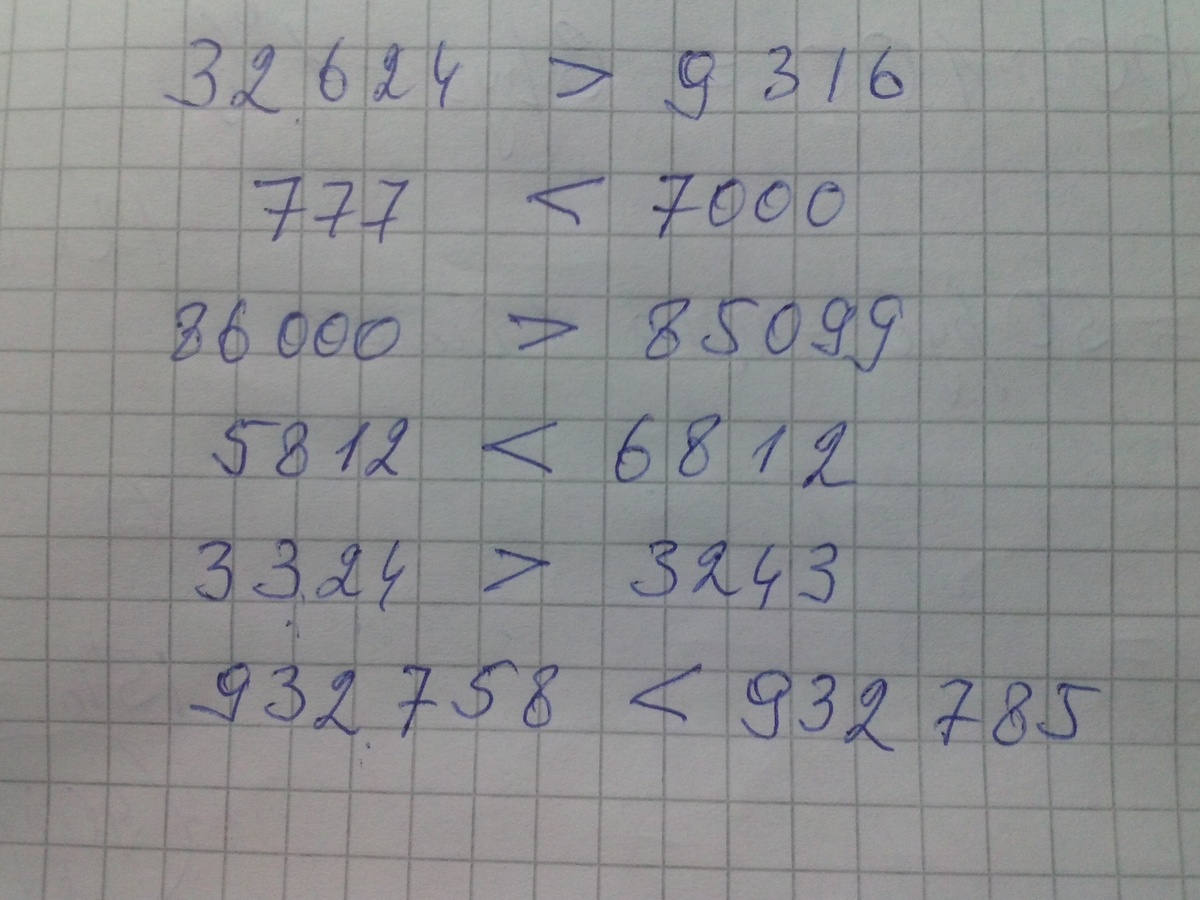 32 624 > 9 316
777 < 7000
86 000 > 85099
5812 < 6812
3324 > 3243
932 758 < 932 785